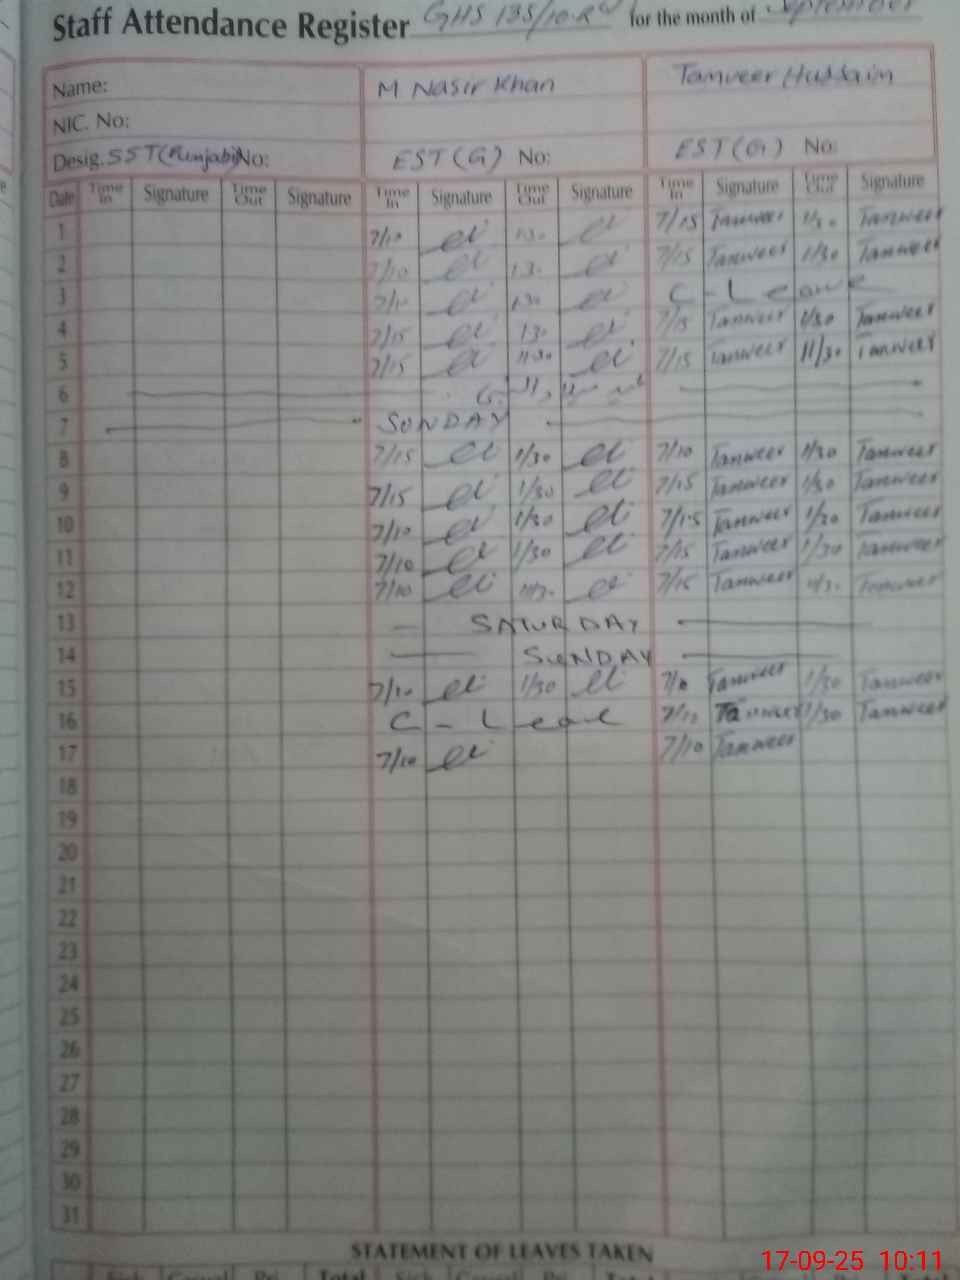 Staff Attendance Register GHS 135/10-R for the month of September
Name: M Nasir Khan Tanveer Hussain
NIC. No:
Desig. SST(Punjabi) No: EST (G) No: EST (G) No:
Date Time In Signature Time Out Signature Time In Signature Time Out Signature Time In Signature Time Out Signature
1 7/10 1.30 7/15 Tanveer 1/30 Tanveer
2 7/10 1.30 7/15 Tanveer 1/30 Tanveer
3 7/10 1.30 C - Leave
4 7/15 1.30 7/15 Tanveer 1/30 Tanveer
5 7/15 11.30 7/15 Tanveer 11/30 Tanveer
6
7 SUNDAY
8 7/15 1/30 7/10 Tanveer 1/30 Tanveer
9 7/15 1/30 7/15 Tanveer 1/30 Tanveer
10 7/10 1/30 7/15 Tanveer 1/30 Tanveer
11 7/10 1/30 7/15 Tanveer 1/30 Tanveer
12 7/10 7/15 Tanveer Tanveer
13 SATURDAY
14 SUNDAY
15 7/10 1/30 7/10 Tanveer 1/30 Tanveer
16 C - Leave Tanveer 1/30 Tanveer
17 7/10 7/10 Tanveer
18
19
20
21
22
23
24
25
26
27
28
29
30
31
STATEMENT OF LEAVES TAKEN
17-09-25 10:11